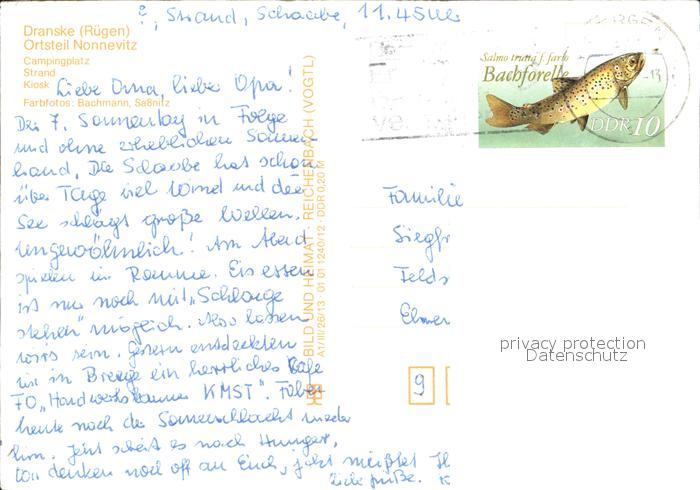 ?, Strand, Schaabe, 11.45 Uhr
Dranske (Rügen)
Ortsteil Nonnevitz
Campingplatz
Strand
Kiosk
Farbfotos: Bachmann, Saßnitz
Liebe Oma, liebe Opa!
Der 7. Sonnentag in Folge
und ohne erheblichen Sonnen-
brand. Die Schaabe hat schon
über Tage viel Wind und die
See schlägt große Wellen.
Ungewöhnlich! Am Abend
spielen wir Romme. Eis essen
ist nur noch mit "Schlange
stehen" möglich. Also lassen
wirs sein. Gestern entdeckten
wir in Breege ein herrliches Café
FO "Handwerkskammer KMST".
heute nach der Sonnenschlacht wieder
hin. Jetzt scheit es nach Hunger,
Wir denken noch oft an Euch, jetzt
Liebe Grüße.
BILD UND HEIMAT REICHENBACH (VOGTL)
A1/III/26/13 01 01 1240/12 DDR 0,20 M
Salmo trutta f. fario
Bachforelle
DDR 10
Familie
Siegfr
Felds
9
privacy protection
Datenschutz